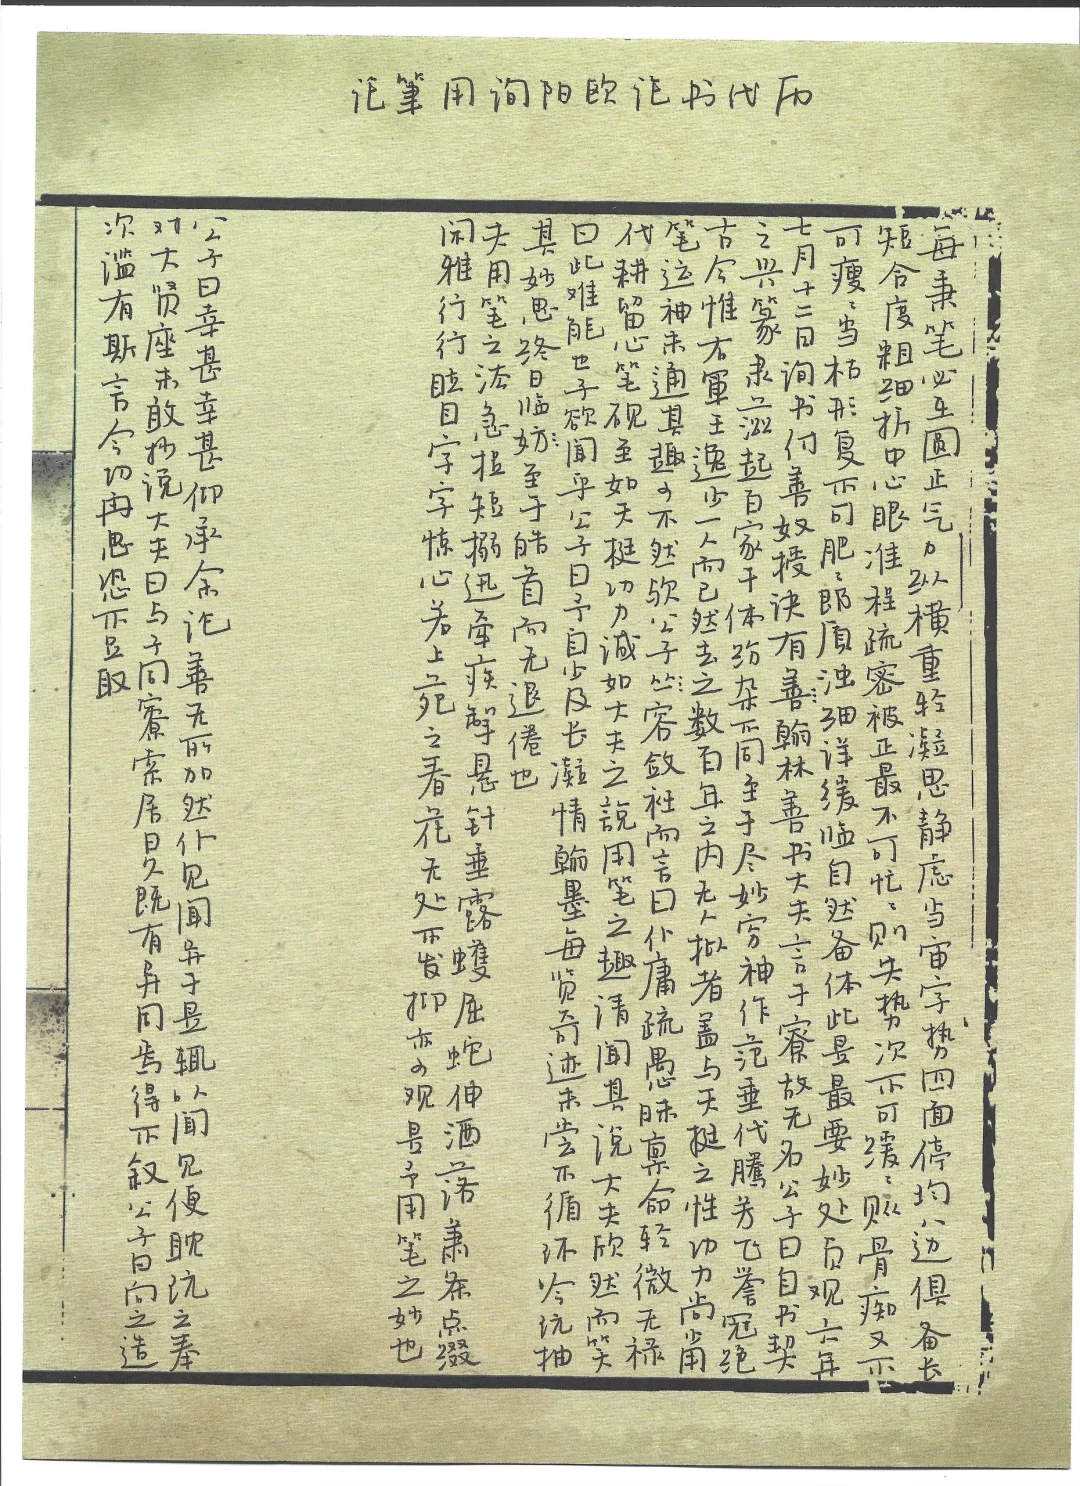 历代书论欧阳询用筆论
每秉笔必在圆正气力纵横重轻凝思静虑当审字势四面停均八边俱备长
短合度粗细折中心眼准程疏密被正最不可忙忙则失势次不可缓缓则骨痴又不
可瘦瘦当枯形复不可肥肥即质浊细详缓临自然备体此是最要妙处贞观六年
七月十二日询书付善奴授诀有善翰林善书大夫言于寮故无名公子曰自书契
之兴篆隶滋起百家千体纷杂不同至于尽妙穷神作范垂代腾芳飞誉冠绝
古今惟右军王逸少一人而已然去之数百年之内无人拟者盖与天挺之性功力尚甫
笔运神未通其趣可不然欤公子丛容敛衽而言曰仆庸疏愚昧禀命轻微无禄
代耕留心笔砚至如天挺功力诚如大夫之說用笔之趣请闻其说大夫欣然而笑
曰此难能也子欲闻乎公子曰予自少及长凝情翰墨每览奇迹未尝不循环吟玩抽
其妙思终日临妨至于皓首而无退倦也
夫用笔之法急捉短搦迅牵疾掣悬针垂露蠖屈蛇伸洒落萧条点缀
闲雅行行眩目字字惊心若上苑之春花无处不发抑亦可观是予用笔之妙也
公子曰幸甚幸甚仰承余论善无所加然仆见闻异于是辄以闻见便耽玩之奉
对大贤座未敢抄说大夫曰与子同寮索居日久既有异同焉得不叙公子曰向之造
次滥有斯言今切再思恐不足取